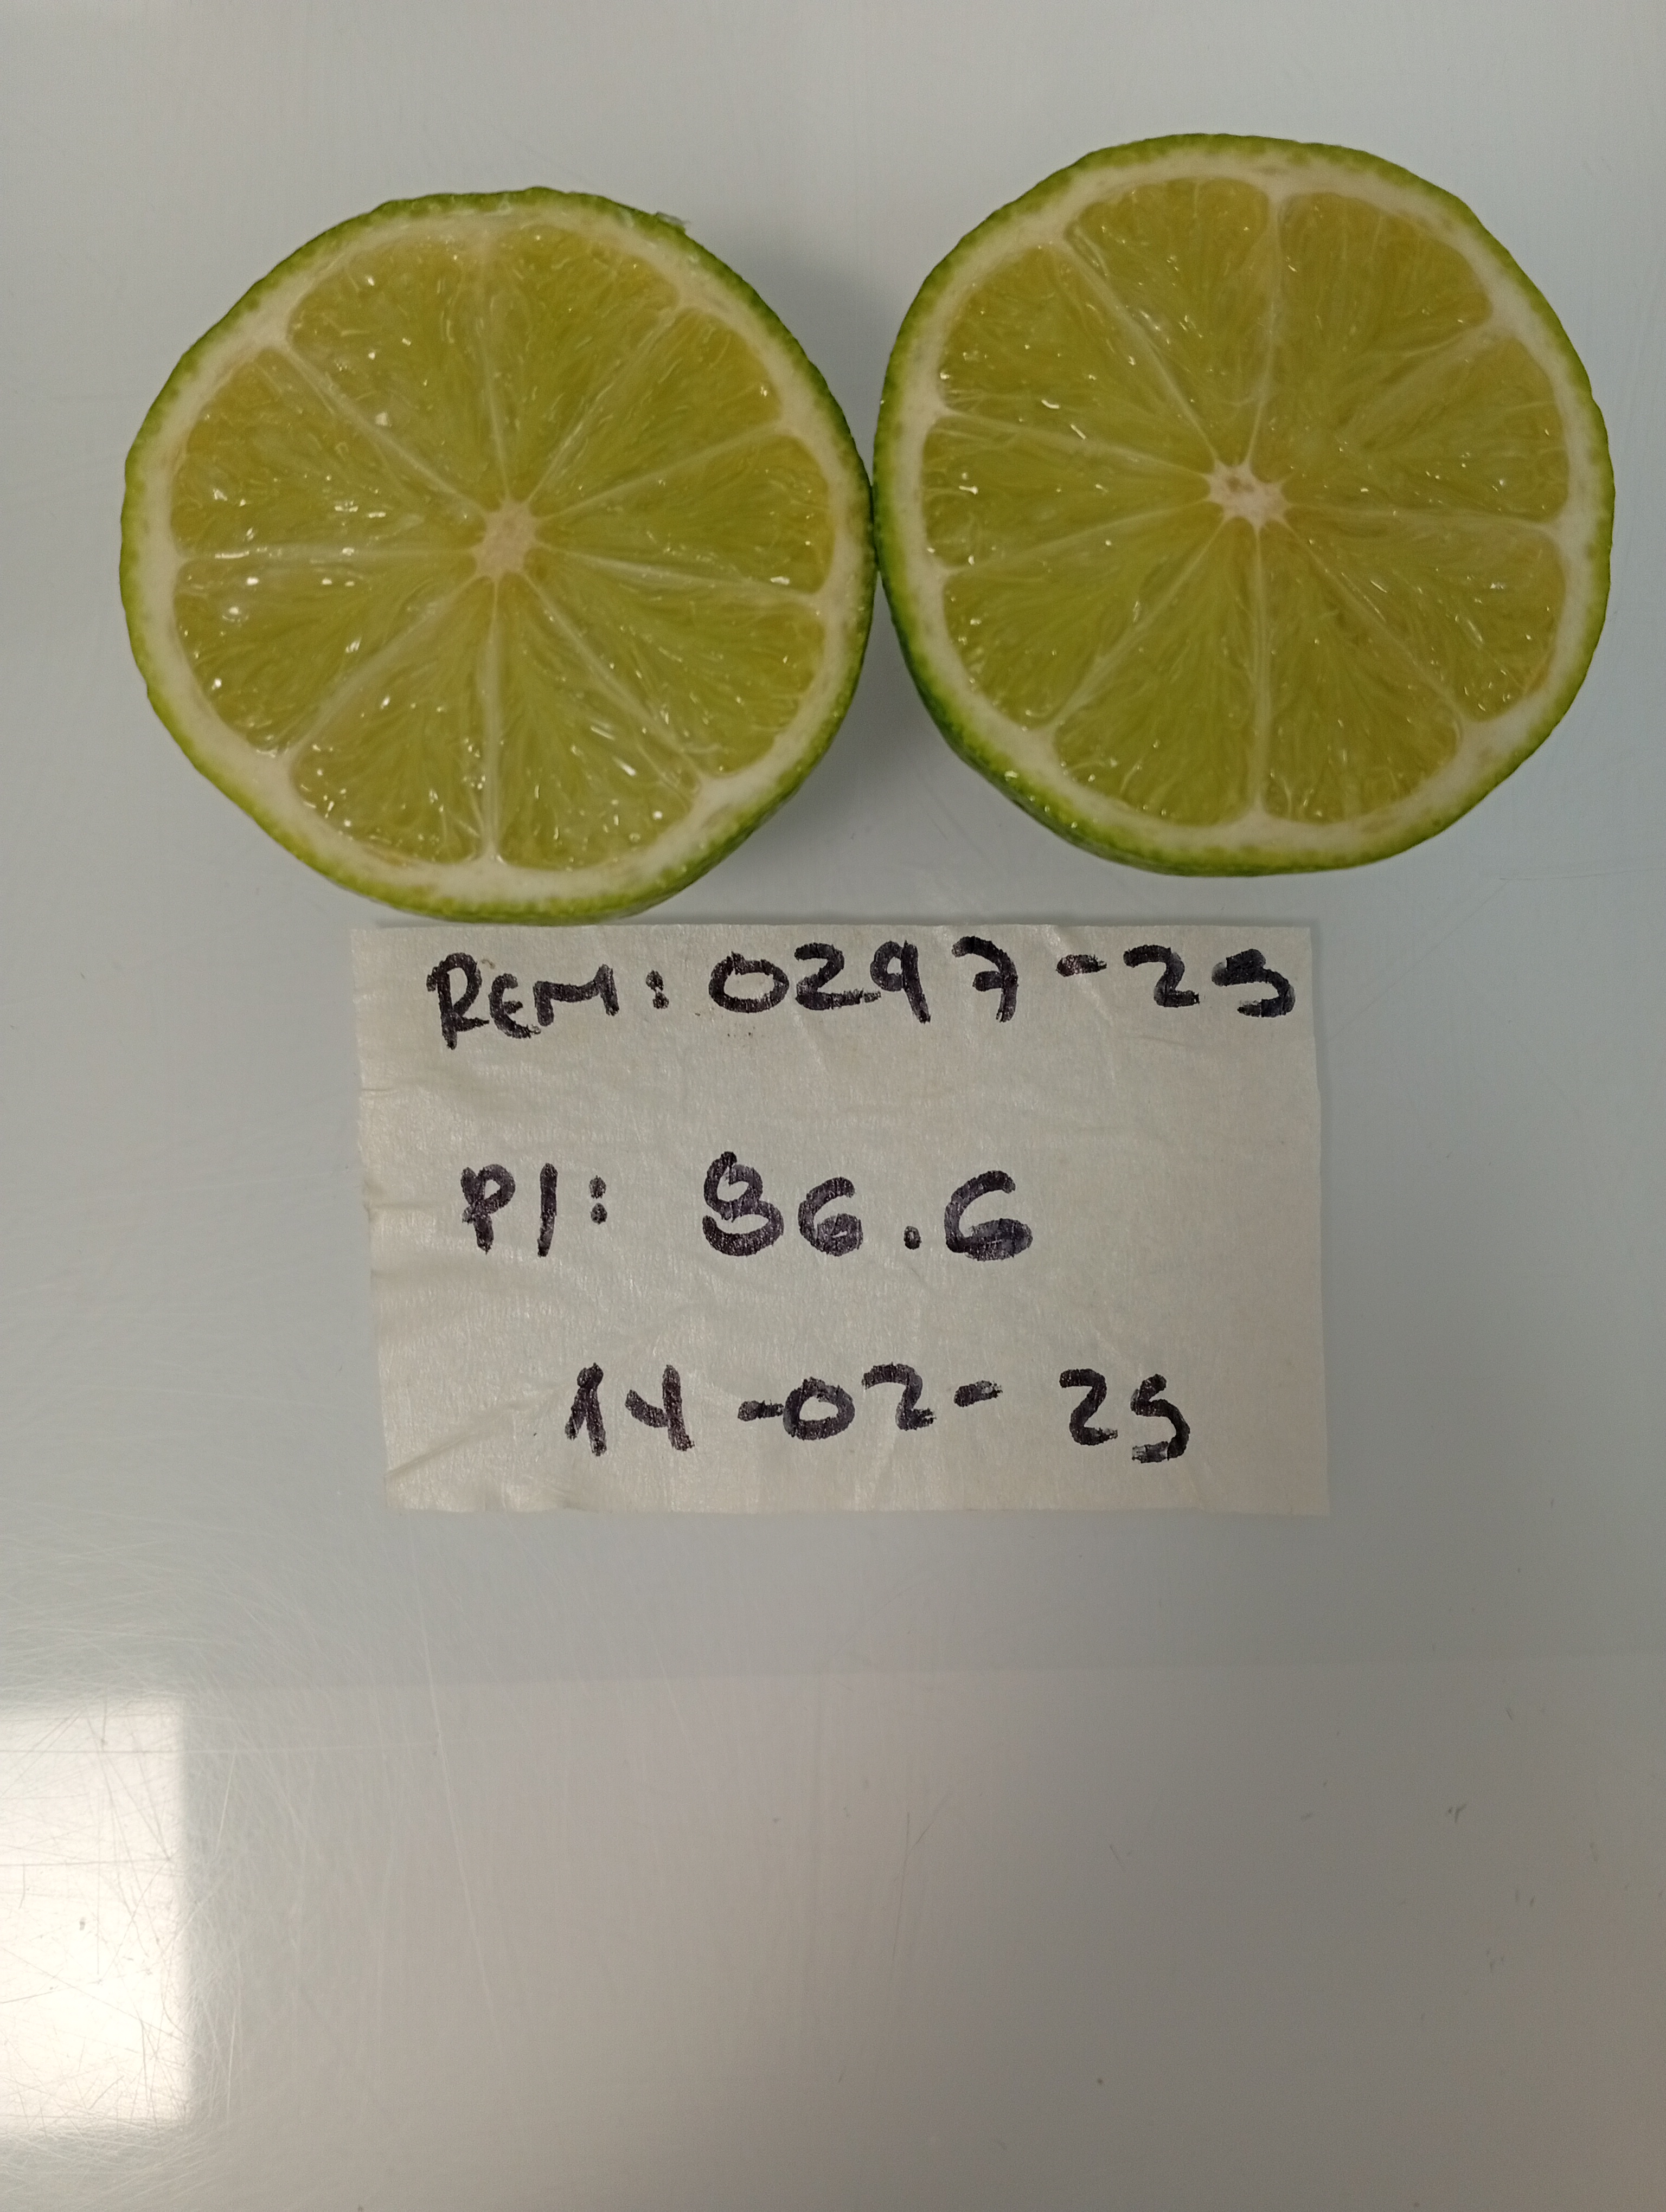 REM: 0297-25
P/: 96.6
14-02-25